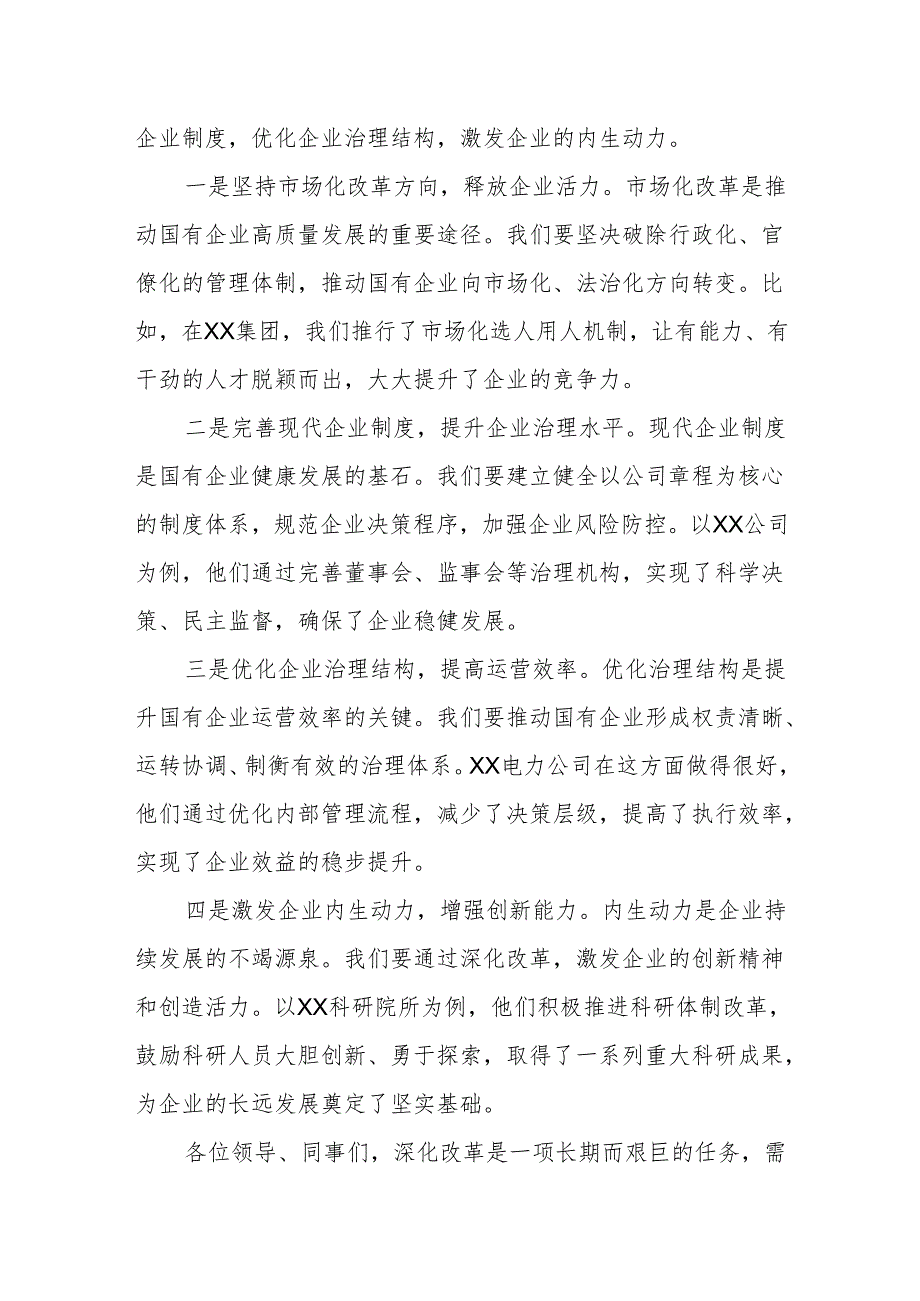 企业制度，优化企业治理结构，激发企业的内生动力。
一是坚持市场化改革方向，释放企业活力。市场化改革是推
动国有企业高质量发展的重要途径。我们要坚决破除行政化、官
僚化的管理体制，推动国有企业向市场化、法治化方向转变。比
如，在XX集团，我们推行了市场化选人用人机制，让有能力、有
干劲的人才脱颖而出，大大提升了企业的竞争力。
二是完善现代企业制度，提升企业治理水平。现代企业制度
是国有企业健康发展的基石。我们要建立健全以公司章程为核心
的制度体系，规范企业决策程序，加强企业风险防控。以XX公司
为例，他们通过完善董事会、监事会等治理机构，实现了科学决
策、民主监督，确保了企业稳健发展。
三是优化企业治理结构，提高运营效率。优化治理结构是提
升国有企业运营效率的关键。我们要推动国有企业形成权责清晰、
运转协调、制衡有效的治理体系。XX电力公司在这方面做得很好，
他们通过优化内部管理流程，减少了决策层级，提高了执行效率，
实现了企业效益的稳步提升。
四是激发企业内生动力，增强创新能力。内生动力是企业持
续发展的不竭源泉。我们要通过深化改革，激发企业的创新精神
和创造活力。以XX科研院所为例，他们积极推进科研体制改革，
鼓励科研人员大胆创新、勇于探索，取得了一系列重大科研成果，
为企业的长远发展奠定了坚实基础。
各位领导、同事们，深化改革是一项长期而艰巨的任务，需